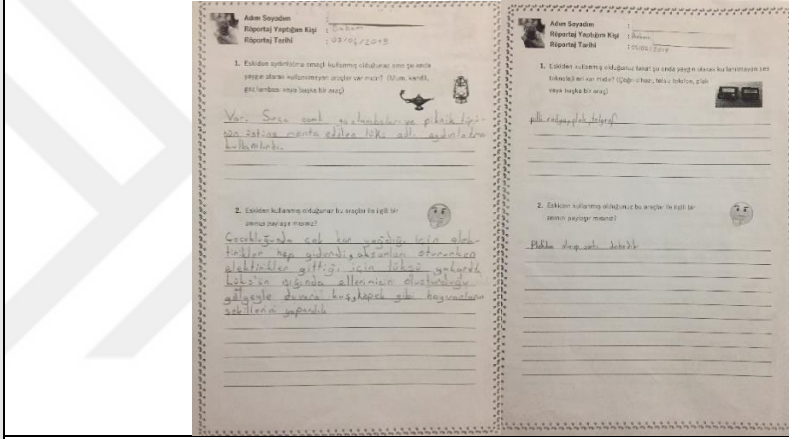 Adım Soyadım :
Röportaj Yaptığım Kişi : Babam
Röportaj Tarihi : 03/04/2018
1. Eskiden aydınlatma amaçlı kullanmış olduğunuz ama şu anda
yaygın olarak kullanılmayan araçlar var mıdır? (Mum, kandil,
gaz lambası veya başka bir araç)
Var. Sıra gaz lambaları ve piknik tüpü-
nün üstüne monte edilen lüks adlı aydınlatma
kullanılırdı.
2. Eskiden kullanmış olduğunuz bu araçlar ile ilgili bir
anınızı paylaşır mısınız?
Çocukluğumda çok kar yağdığı için elek-
tirikler hep giderdi, akşamları otururken
elektirikler gittiği için lüksü yakardık
Lüks'ün ışığında ellerimizin oluşturduğu
gölgeyle duvara kuş, köpek gibi hayvanların
şekillerini yapardık
Adım Soyadım :
Röportaj Yaptığım Kişi : Babam
Röportaj Tarihi :
1. Eskiden kullanmış olduğunuz fakat şu anda yaygın olarak kullanılmayan ses
teknolojileri var mıdır? (Çağrı cihazı, telsiz telefon, plak
veya başka bir araç)
pilli radyo, plak, telgraf
2. Eskiden kullanmış olduğunuz bu araçlar ile ilgili bir
anınızı paylaşır mısınız?